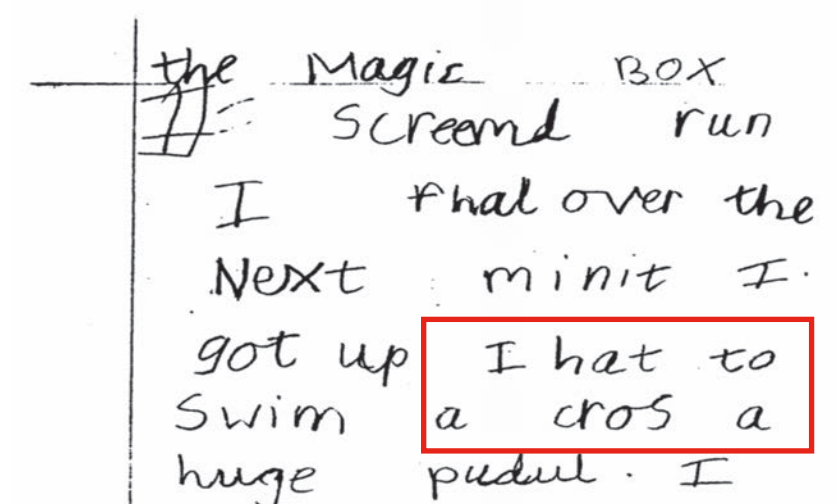 the Magic BOX
I Screemd run
I fhal over the
Next minit I.
got up I hat to
Swim a cros a
huge pudul. I